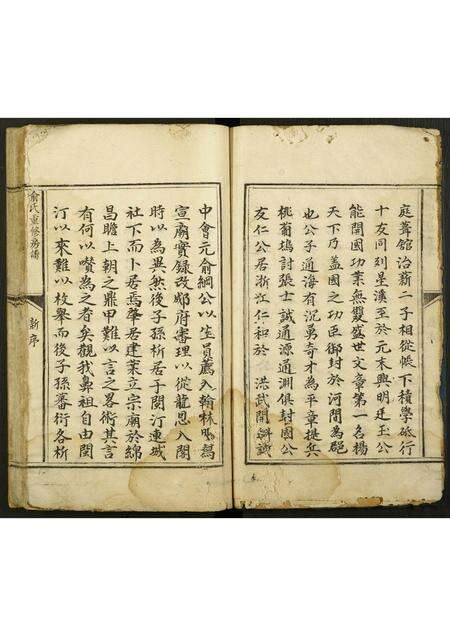 庭葺館治薪二子相從帳下積學砥行
十友同列星溪至於元末與明廷玉公
能開國功業無雙盛世文章第一名楊
天下乃蓋國之功臣御封於河間為郡
也公子通海有沉勇奇才為平章提兵
桃蕳塢討張士誠通源通淵俱封國公
友仁公居浙江仁和於 洪武開科試
中會元俞綱公以生員薦入翰林
宣廟實錄改郕府審理以從龍恩入閣
時以為異然後子孫析居于閩汀連城
社下而卜居焉肇居建業立宗廟於綿
昌瞻上朝之鼎甲難以言之畧術其言
有何以嚽為之者矣觀我鼻祖自由閩
汀以來難以枚舉而後子孫蕃衍各析
俞氏重修房譜
新序